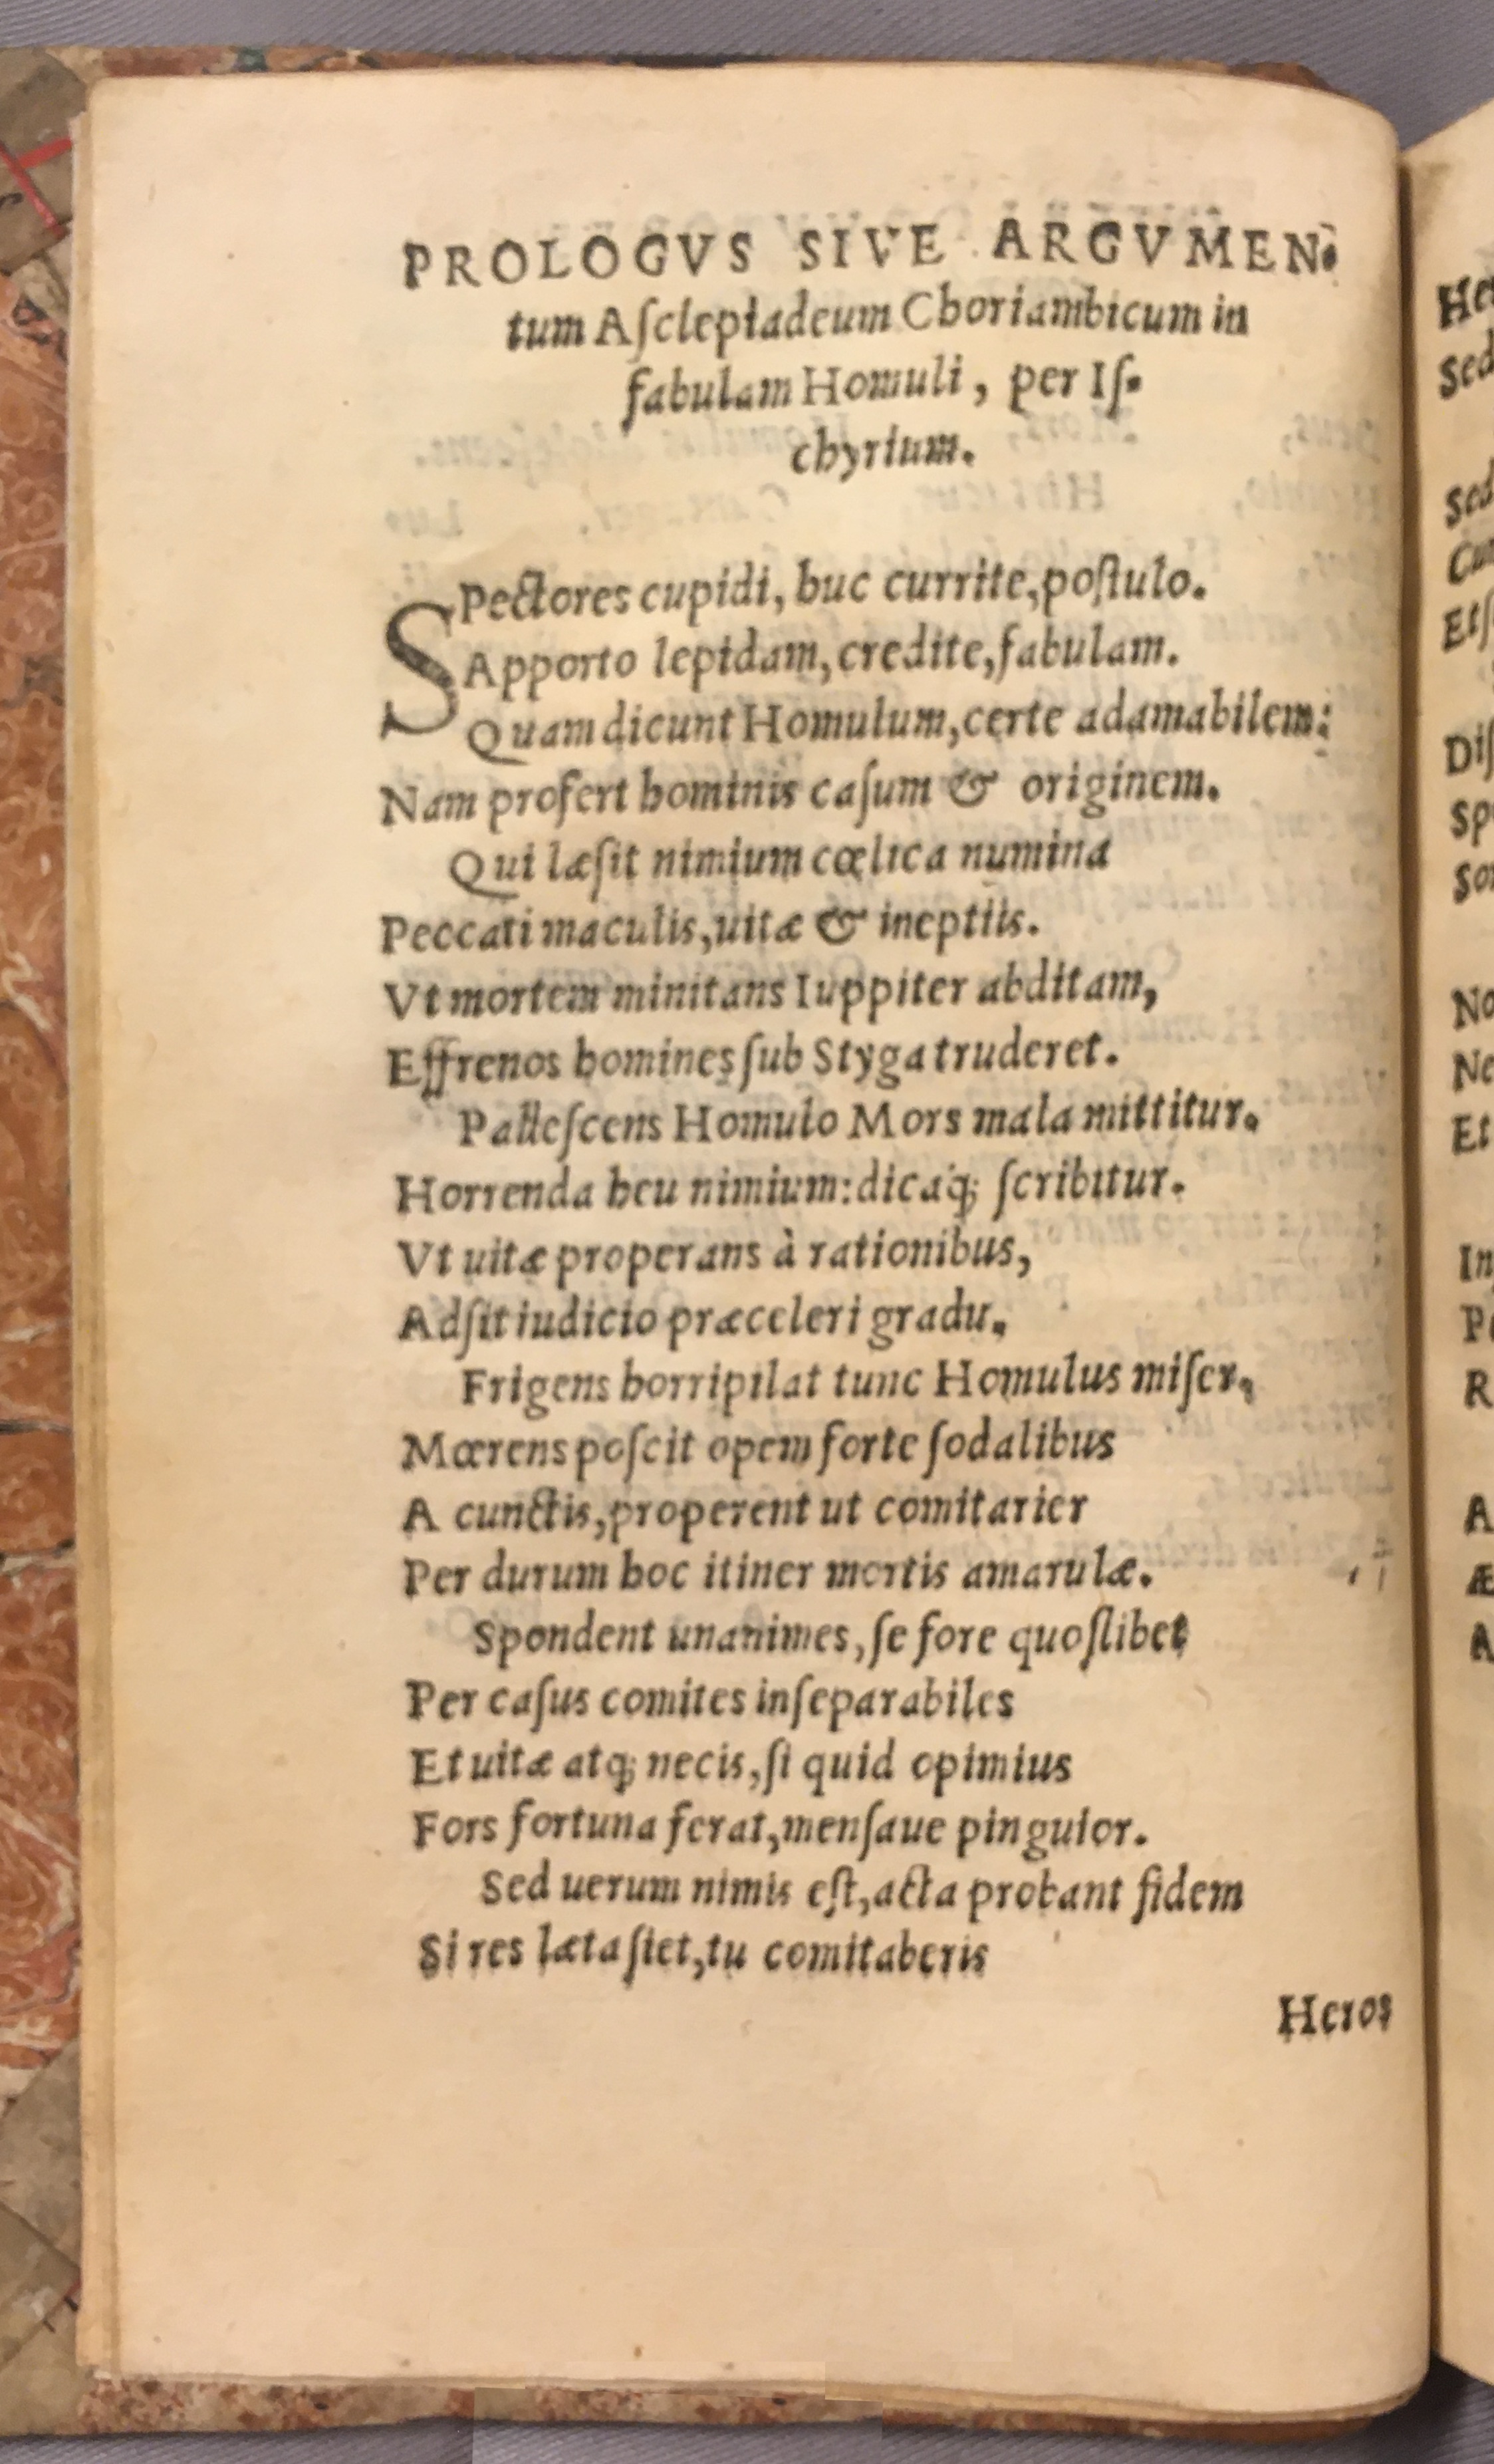 PROLOGVS SIVE ARGVMEN.
tum Aſclepiadeum Choriambicum in
fabulam Homuli, per Iſ.
chyrium.
SPectores cupidi, huc currite, poſtulo.
Apporto lepidam, credite, fabulam.
Quam dicunt Homulum, certe adamabilem:
Nam profert hominis caſum & originem.
Qui læſit nimium cœlica numina
Peccati maculis, uitæ & ineptiis.
Vt mortem minitans Iuppiter abditam,
Effrenos homines ſub Styga truderet.
Palleſcens Homulo Mors mala mittitur.
Horrenda heu nimium: dicaq́; ſcribitur.
Vt uitæ properans à rationibus,
Adſit iudicio præceleri gradu.
Frigens horripilat tunc Homulus miſer,
Mœrens poſcit opem forte ſodalibus
A cunctis, properent ut comitarier
Per durum hoc itiner mortis amarulæ.
Spondent unanimes, ſe fore quoſlibet
Per caſus comites inſeparabiles
Et uitæ atq; necis, ſi quid opimius
Fors fortuna ferat, menſaue pinguior.
Sed uerum nimis eſt, acta probant fidem
Si res læta ſiet, tu comitaberis
Heros
Her
Sed
Sed
Cu
Etſ
Diſ
Sp
So
No
Ne
Et
In
Pe
R
A
Æ
A